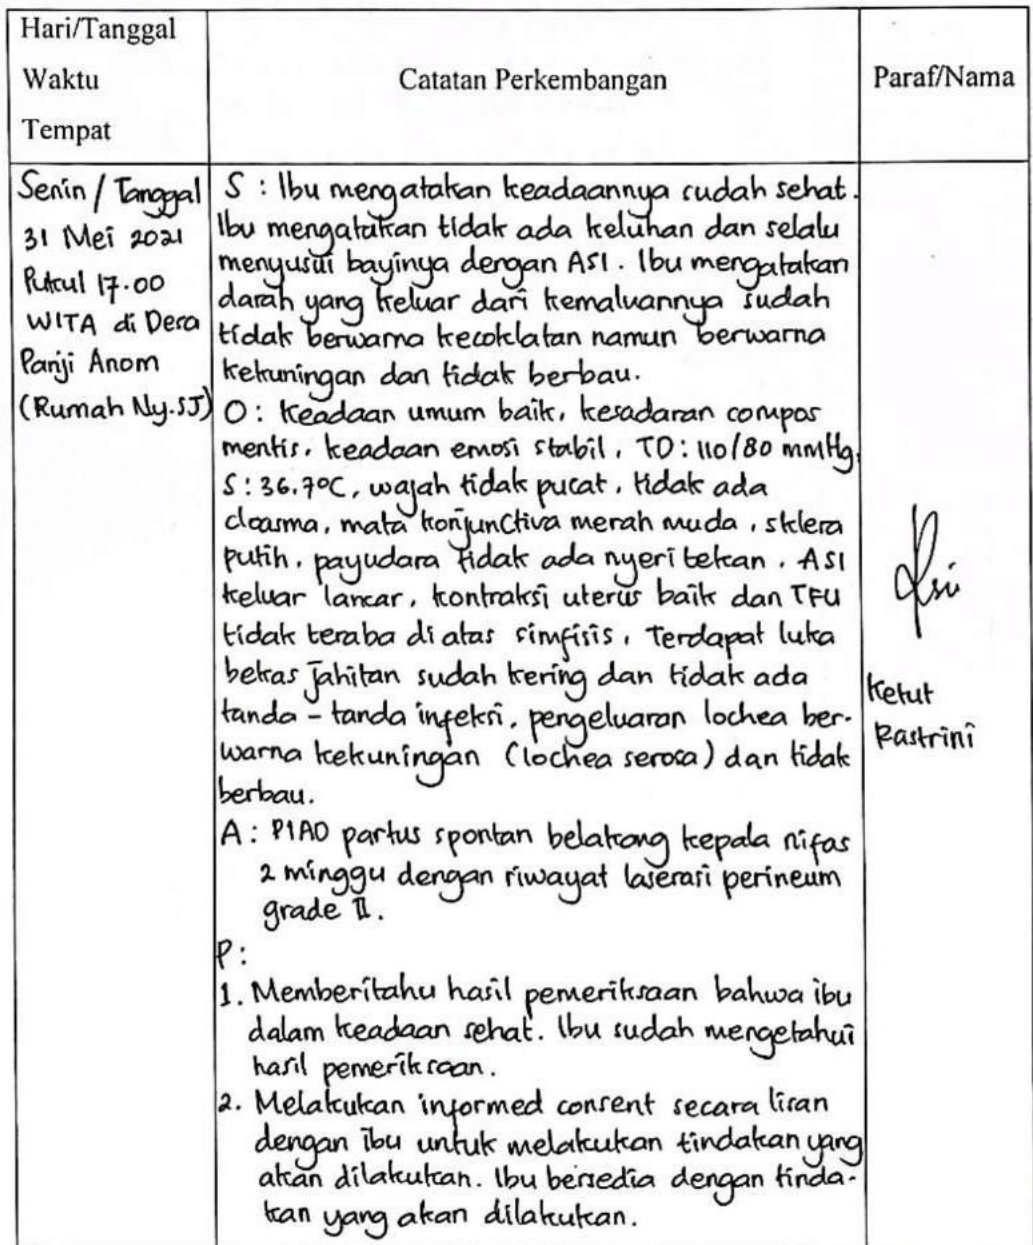 Hari/Tanggal
Waktu
Tempat
Catatan Perkembangan
Paraf/Nama
Senin / Tanggal
31 Mei 2021
Pukul 17.00
WITA di Desa
Panji Anom
(Rumah Ny.SJ)
S : Ibu mengatakan keadaannya sudah sehat.
Ibu mengatakan tidak ada keluhan dan selalu
menyusui bayinya dengan ASI. Ibu mengatakan
darah yang keluar dari kemaluannya sudah
tidak berwarna kecoklatan namun berwarna
kekuningan dan tidak berbau.
O : Keadaan umum baik, kesadaran compos
mentis, keadaan emosi stabil, TD : 110/80 mmHg,
S : 36.7°C, wajah tidak pucat, tidak ada
cloasma, mata konjunctiva merah muda, sklera
putih, payudara tidak ada nyeri tekan, ASI
keluar lancar, kontraksi uterus baik dan TFU
tidak teraba di atas simfisis, Terdapat luka
bekas jahitan sudah kering dan tidak ada
tanda - tanda infeksi, pengeluaran lochea ber-
warna kekuningan (lochea serosa) dan tidak
berbau.
A : P1A0 partus spontan belakang kepala nifas
2 minggu dengan riwayat laserasi perineum
grade II.
P :
1. Memberitahu hasil pemeriksaan bahwa ibu
dalam keadaan sehat. Ibu sudah mengetahui
hasil pemeriksaan.
2. Melakukan informed consent secara lisan
dengan ibu untuk melakukan tindakan yang
akan dilakukan. Ibu bersedia dengan tinda-
kan yang akan dilakukan.
Ketut
Rastrini